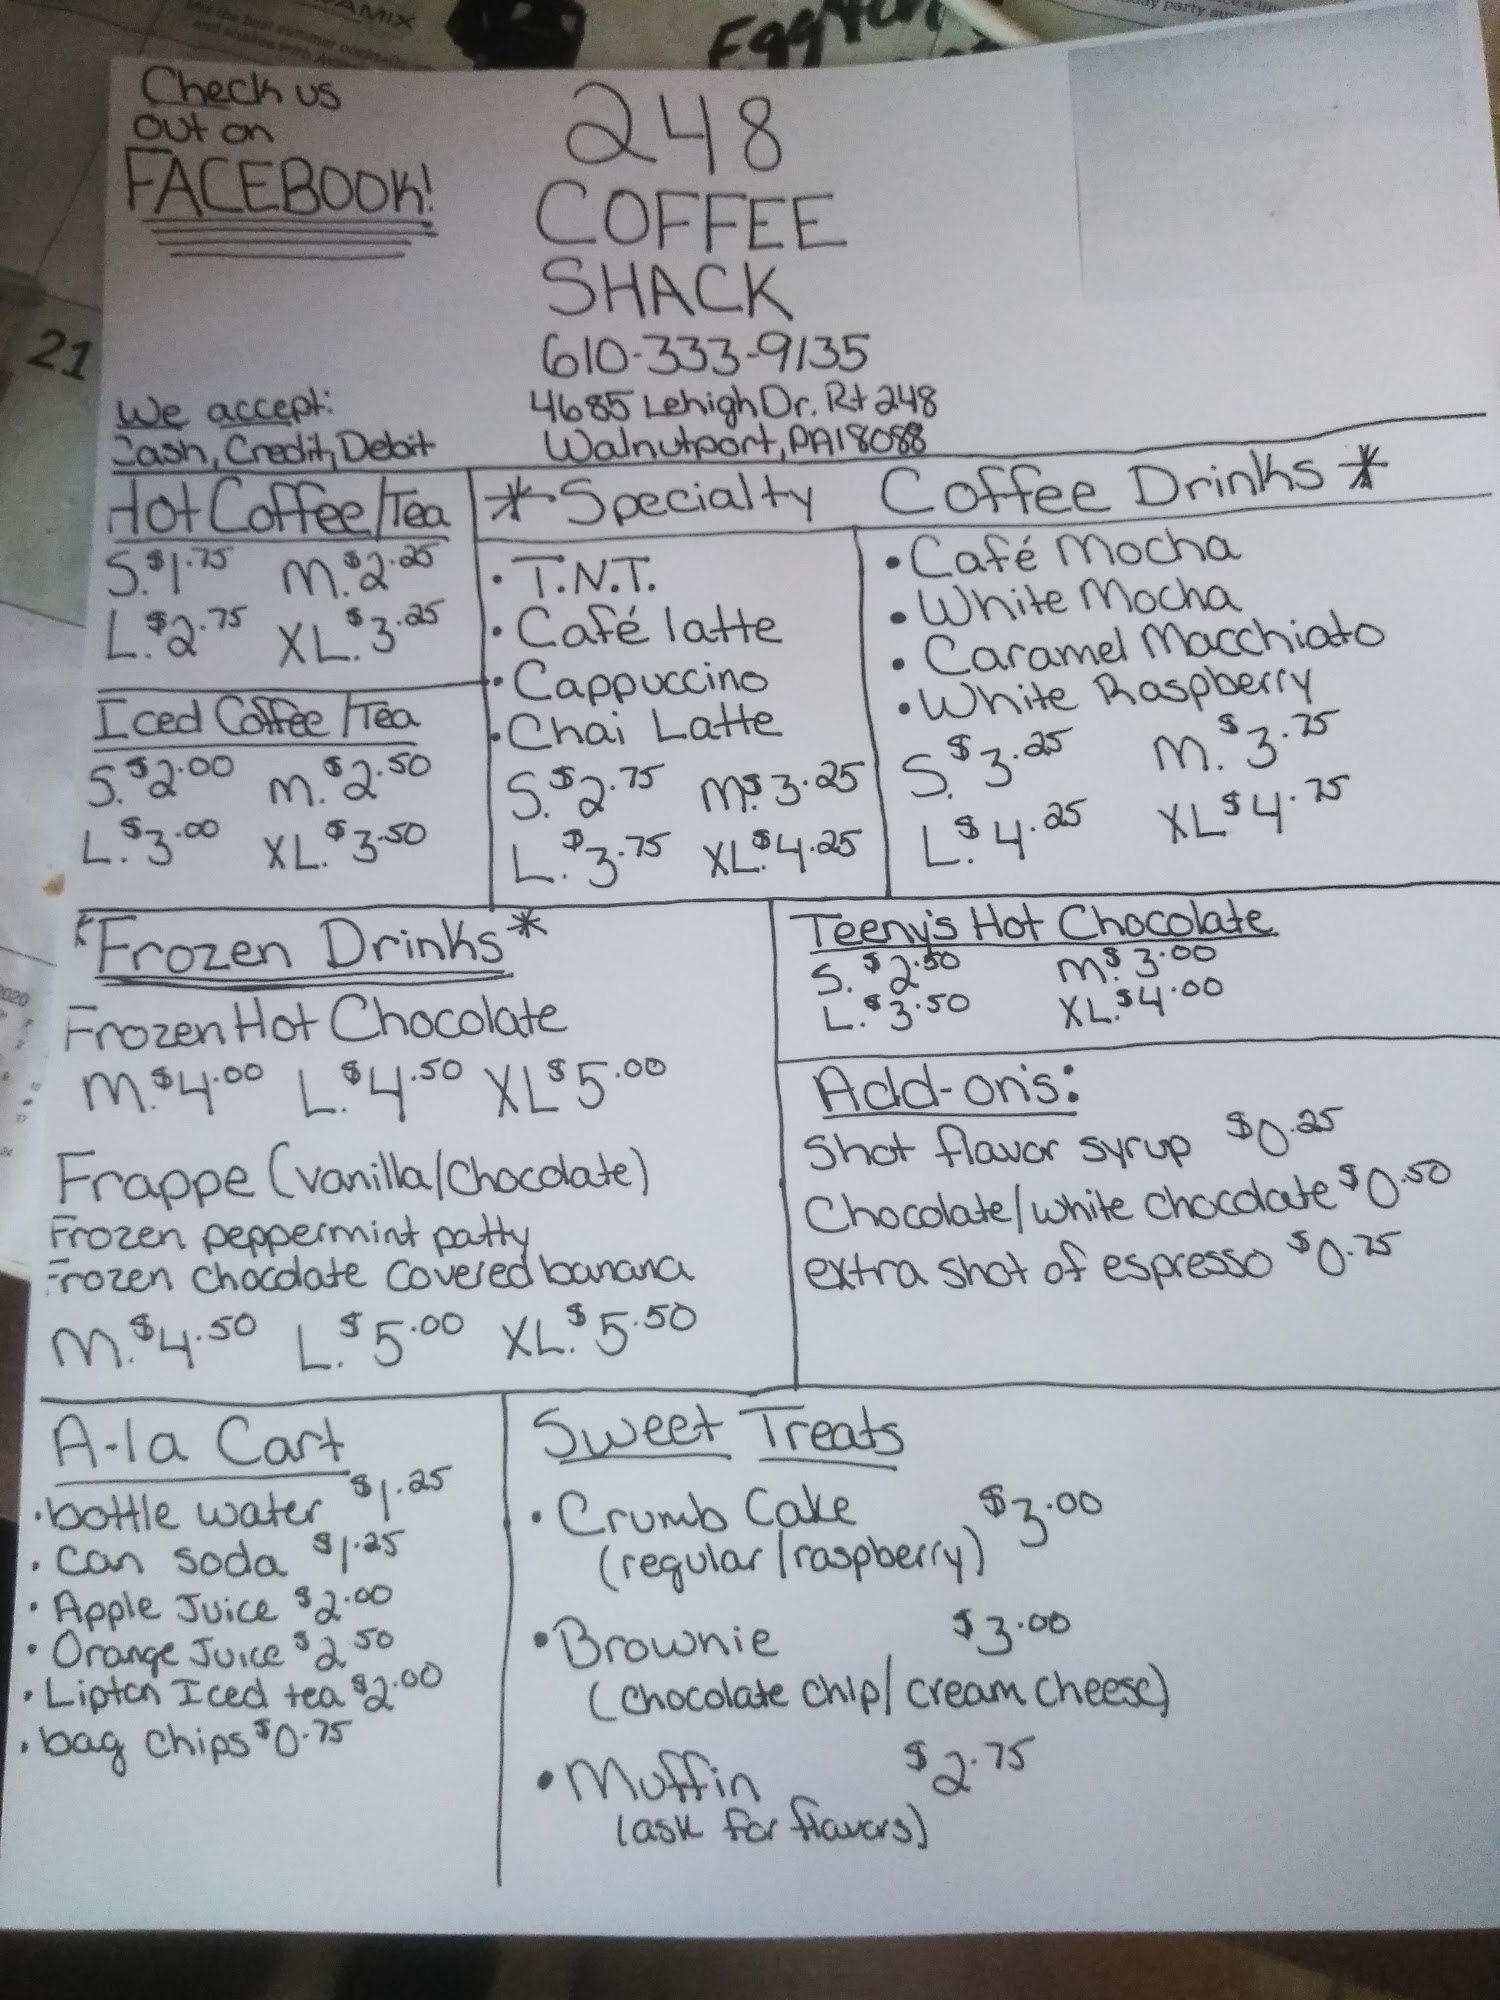 AMIX
Eggton
Check us
out on
FACEBOOK!
248
COFFEE
SHACK
610-333-9135
4685 Lehigh Dr. Rt 248
Walnutport, PA 18088
21
We accept:
Cash, Credit, Debit
Hot Coffee/Tea
S. $1.75 M. $2.25
L. $2.75 XL. $3.25
Iced Coffee/Tea
S. $2.00 M. $2.50
L. $3.00 XL. $3.50
*Specialty Coffee Drinks*
• T.N.T.
• Café latte
• Cappuccino
• Chai Latte
S. $2.75 M. $3.25
L. $3.75 XL. $4.25
• Café Mocha
• White Mocha
• Caramel Macchiato
• White Raspberry
S. $3.25 M. $3.75
L. $4.25 XL $4.75
*Frozen Drinks*
Frozen Hot Chocolate
M. $4.00 L. $4.50 XL $5.00
Frappe (vanilla/chocolate)
Frozen peppermint patty
Frozen chocolate covered banana
M. $4.50 L. $5.00 XL. $5.50
Teeny's Hot Chocolate
S. $2.50 M. $3.00
L. $3.50 XL. $4.00
Add-on's:
Shot flavor syrup $0.25
Chocolate/white chocolate $0.50
extra shot of espresso $0.75
A-la Cart
• bottle water $1.25
• can soda $1.25
• Apple Juice $2.00
• Orange Juice $2.50
• Lipton Iced tea $2.00
• bag chips $0.75
Sweet Treats
• Crumb Cake $3.00
(regular/raspberry)
• Brownie $3.00
(chocolate chip/cream cheese)
• Muffin $2.75
(ask for flavors)
2020